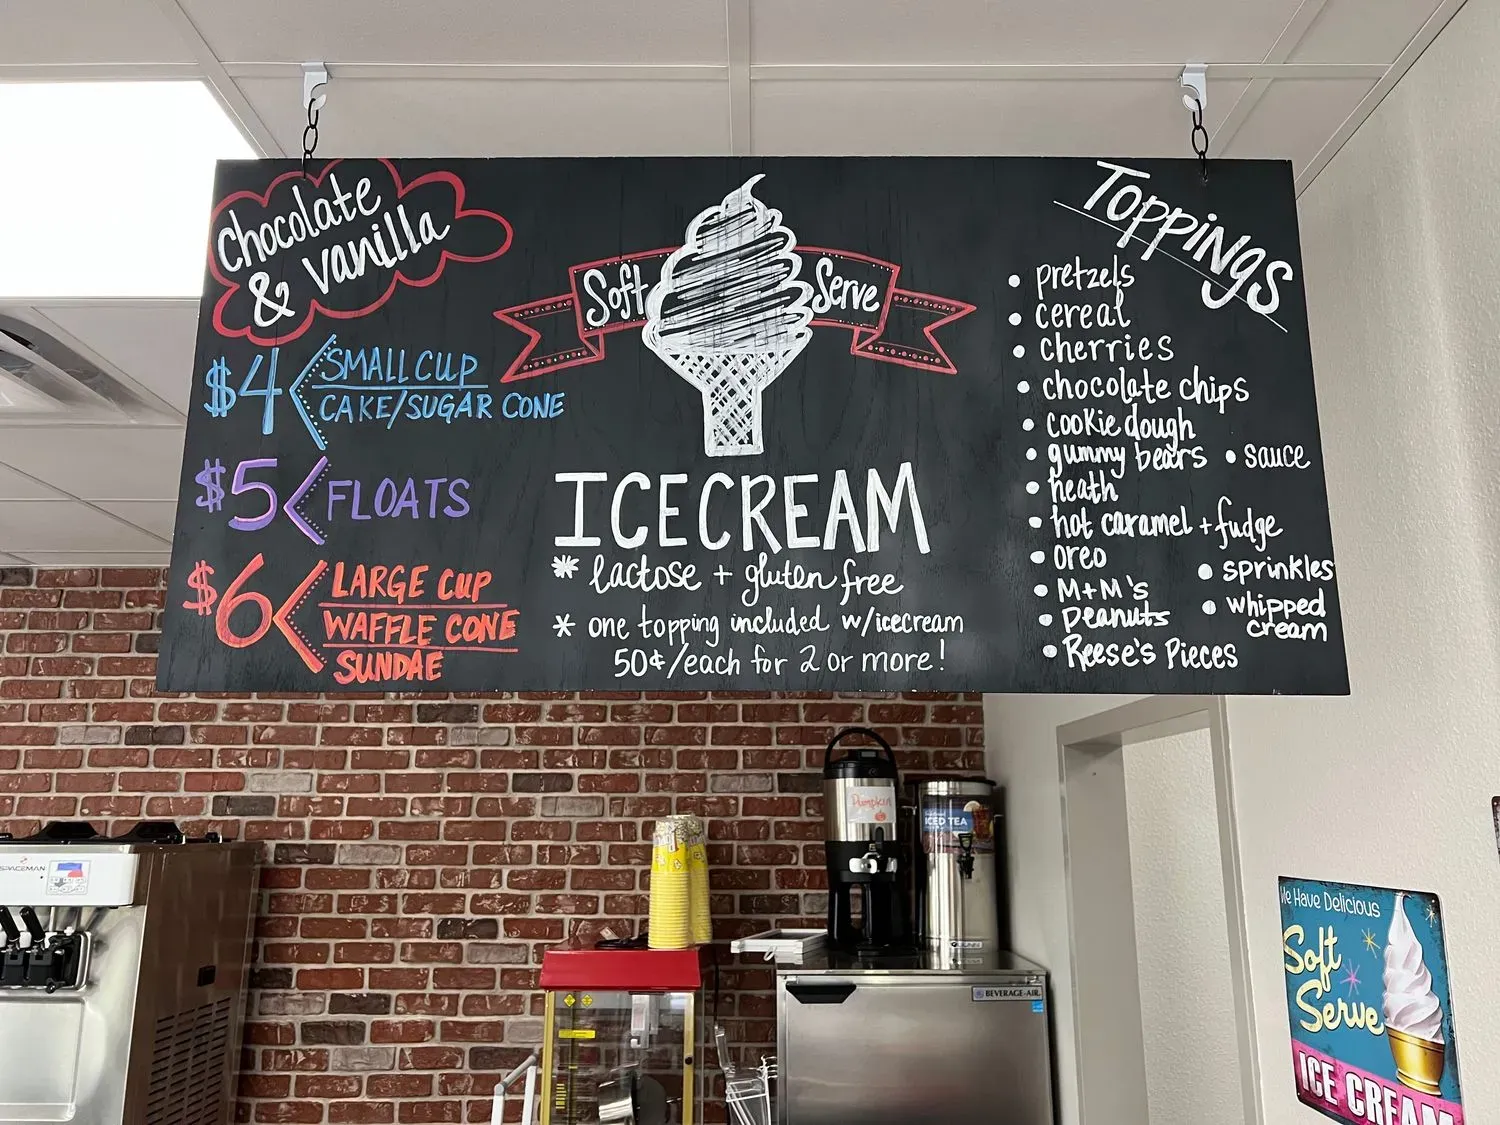 Chocolate
& vanilla
$4
SMALL CUP
CAKE/SUGAR CONE
$5
FLOATS
$6
LARGE CUP
WAFFLE CONE
SUNDAE
Soft Serve
ICECREAM
* lactose + gluten free
* one topping included w/icecream
50¢/each for 2 or more!
Toppings
• pretzels
• cereal
• cherries
• chocolate chips
• cookie dough
• gummy bears • sauce
• heath
• hot caramel + fudge
• oreo
• sprinkles
• M+M's
• whipped
cream
• Peanuts
• Reese's Pieces
Pumpkin
ICED TEA
SPACEMAN
BEVERAGE-AIR
We Have Delicious
Soft
Serve
ICE CREAM